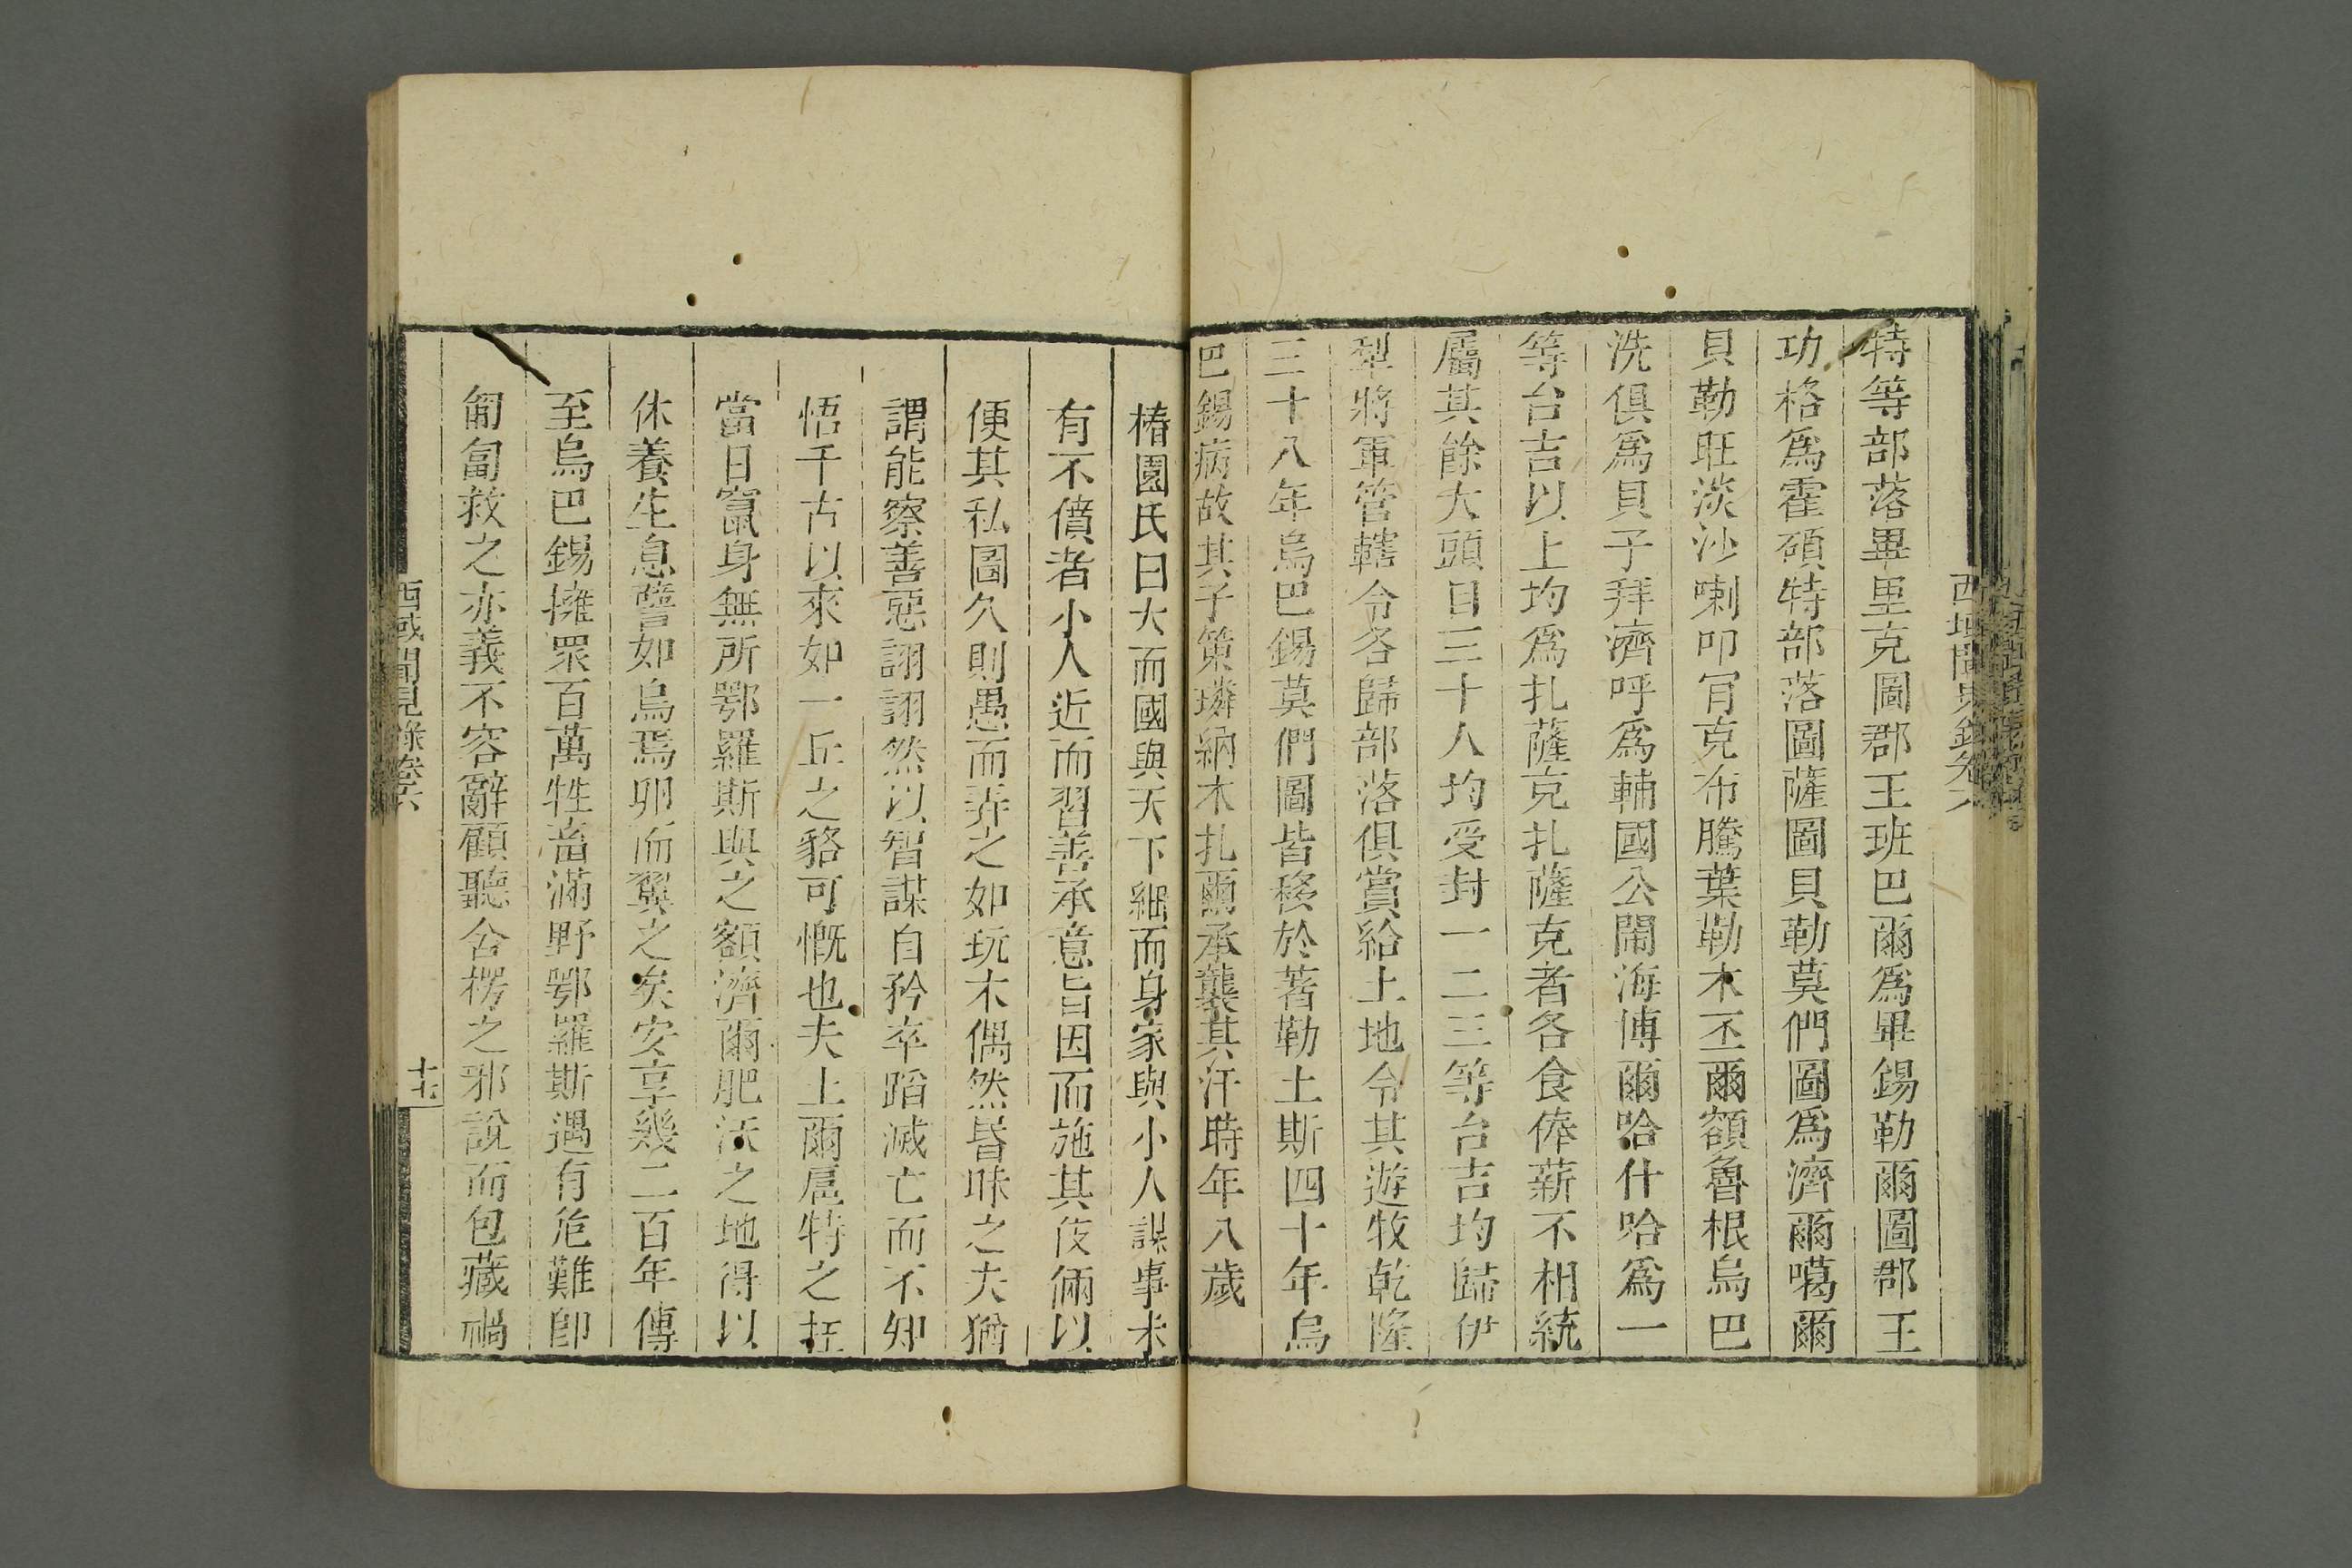 特等部落畢里克圖郡王班巴爾爲畢錫勒爾圖郡王
功格爲霍碩特部落圖薩圖貝勒莫們圖爲濟爾噶爾
貝勒旺淡沙喇叩肎克布騰葉勒木丕爾額魯根烏巴
洗俱爲貝子拜濟呼爲輔國公鬧海傅爾哈什哈爲一
等台吉以上均爲扎薩克扎薩克者各食俸薪不相統
屬其餘大頭目三十人均受封一二三等台吉均歸伊
犁將軍管轄令各歸部落俱賞給土地令其遊牧乾隆
三十八年烏巴錫莫們圖皆移於著勒土斯四十年烏
巴錫病故其子策璘納木扎爾承襲其汗時年八歲
椿園氏曰大而國與天下細而身家與小人謀事未
有不僨者小人近而習善承意旨因而施其伎倆以
便其私圖久則愚而弄之如玩木偶然昏昧之夫猶
謂能察善惡詡詡然以智謀自矜卒蹈滅亡而不知
悟千古以來如一丘之貉可慨也夫土爾扈特之在
當日竄身無所鄂羅斯與之額濟爾肥沃之地得以
休養生息譬如烏焉卵而翼之矣安享幾二百年傳
至烏巴錫擁眾百萬牲畜滿野鄂羅斯遇有危難卽
匍匐救之亦義不容辭顧聽舍楞之邪說而包藏禍
西域聞見錄卷六
十五